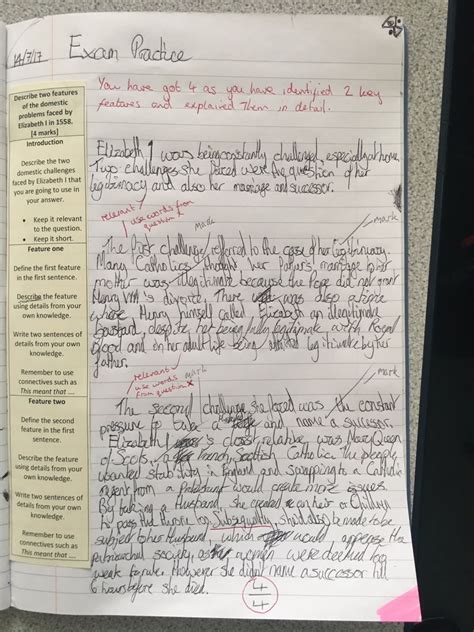 14/7/17
Exam Practice
Describe two features
of the domestic
problems faced by
Elizabeth I in 1558.
[4 marks]
Introduction
Describe the two
domestic challenges
faced by Elizabeth I that
you are going to use in
your answer.
• Keep it relevant
to the question.
• Keep it short.
Feature one
Define the first feature
in the first sentence.
Describe the feature
using details from your
own knowledge.
Write two sentences of
details from your own
knowledge.
Remember to use
connectives such as
This meant that ...
Feature two
Define the second
feature in the first
sentence.
Describe the feature
using details from your
own knowledge.
Write two sentences of
details from your own
knowledge.
Remember to use
connectives such as
This meant that ...
You have got 4 as you have identified 2 key
features and explained them in detail.
Elizabeth I was being constantly challenged, especially at home.
Two challenges she faced were the question of her
legitimacy and also her marriage and successor.
relevant
use words from
question
mark
mark
The first challenge referred to the case of her legitimacy.
Many Catholics thought her Father's marriage to her
mother was illegitimate because the Pope did not grant
Henry VIII's divorce. There was also a time
where Henry himself called Elizabeth an illegitimate
Bastard, despite her being legitimate with Royal
Blood and in her adult life being legitimate by her
father.
relevant
use words
from question
mark
mark
The second challenge she faced was the constant
pressure to take a and name a successor.
Elizabeth's closest relative, was Mary Queen
of Scots, a French, Scottish Catholic the people
wanted stability in England and swapping to a Catholic
from a Protestant would create more issues.
By taking a Husband, she created an heir or Children
to pass subsequently, should also be made to be
subject to her Husband, which would appease the
patriarchal society, as women were deemed too
weak to rule. However she didn't name a successor till
6 hours before she died.
4
4